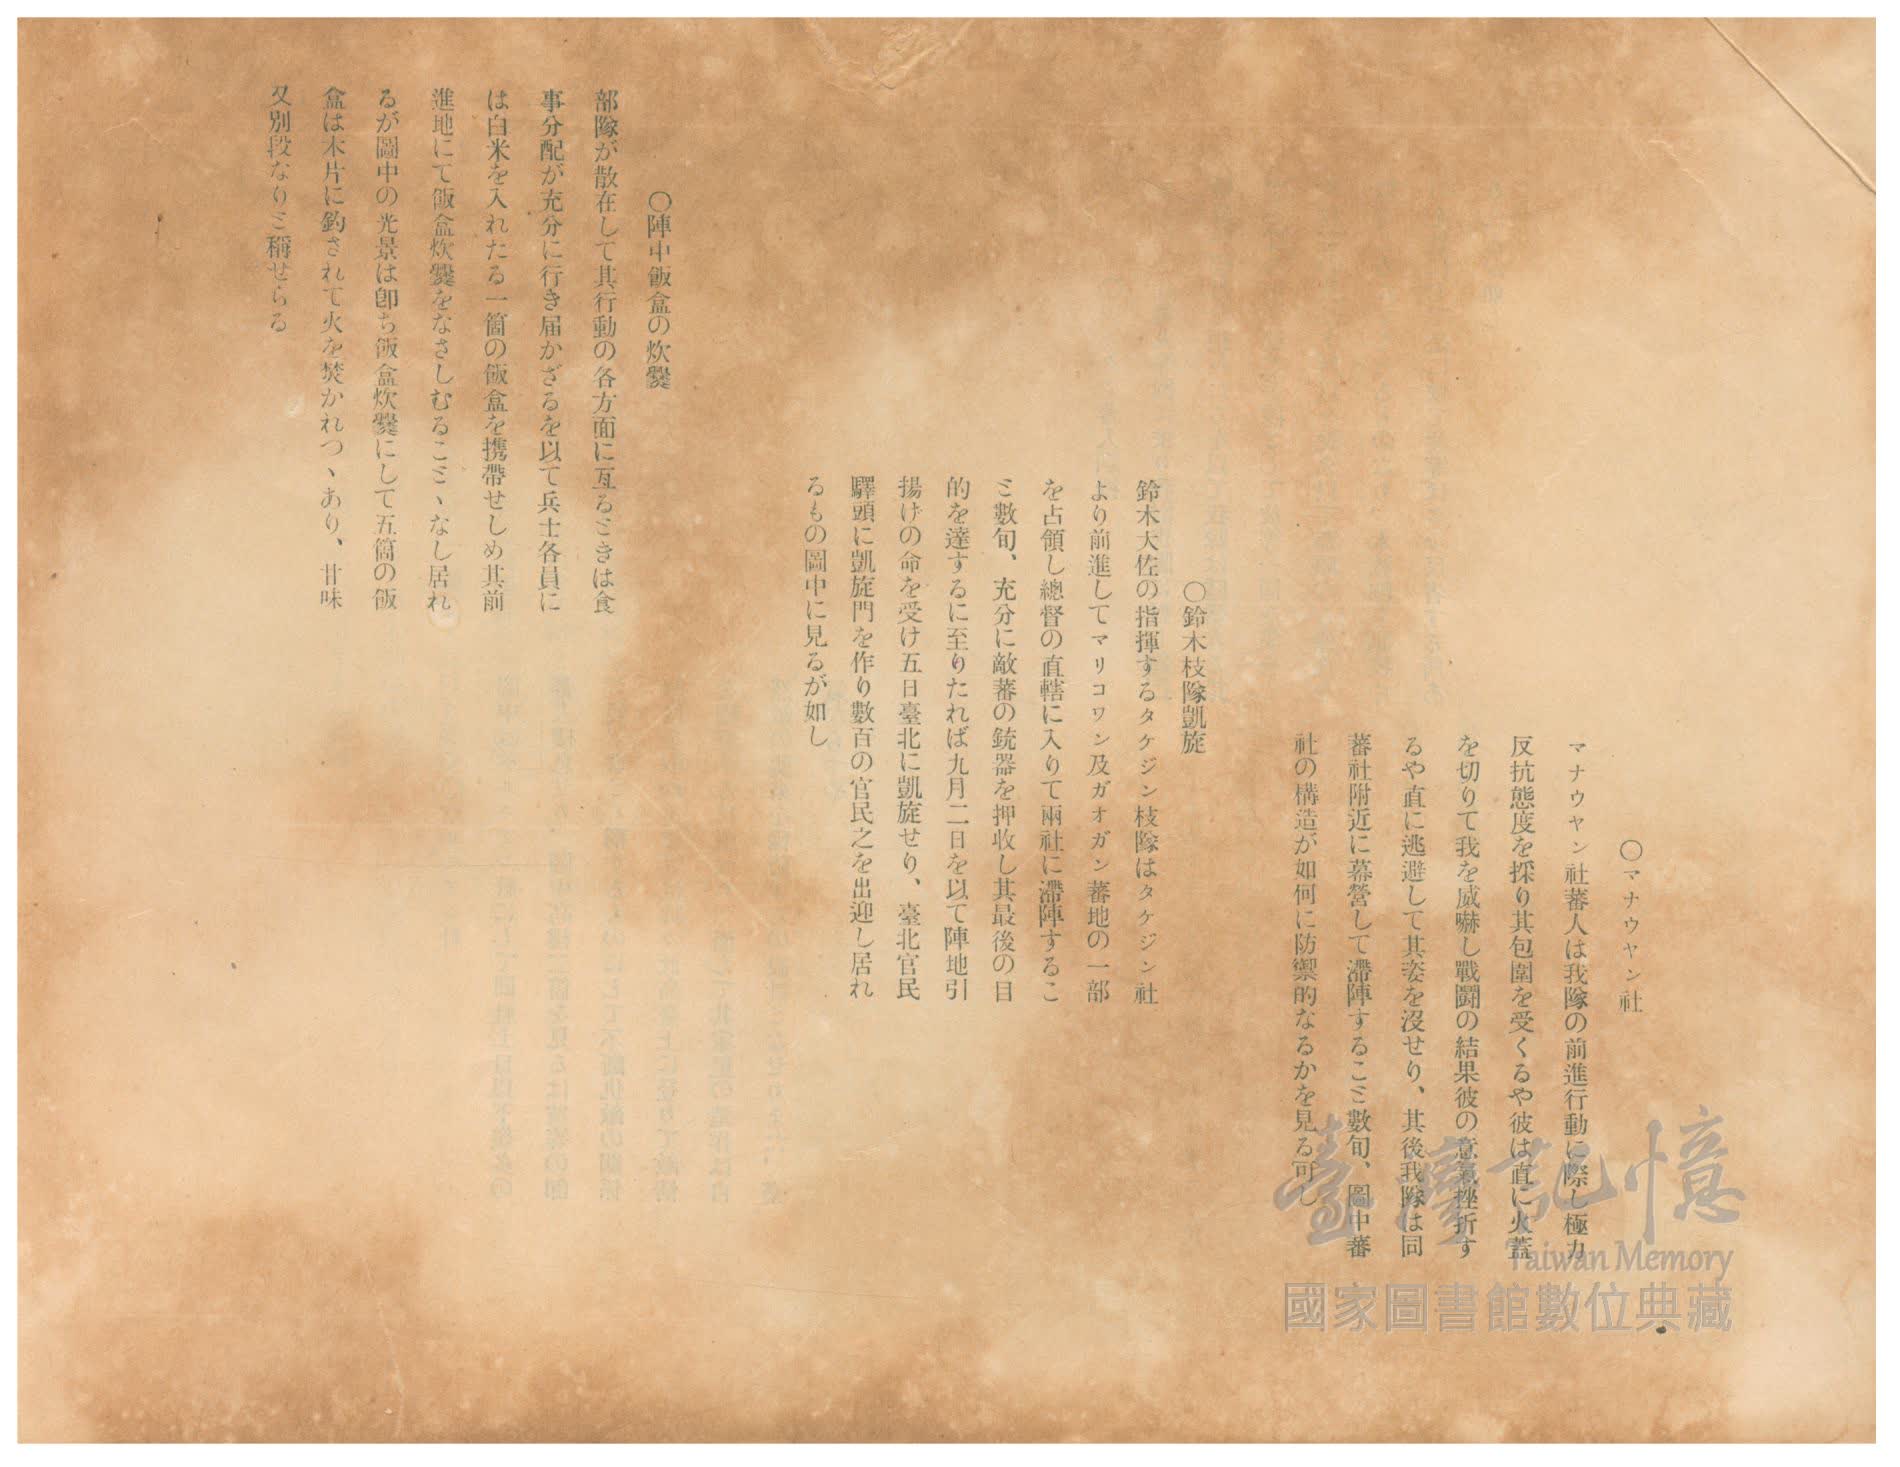 〇マナウヤン社
マナウヤン社蕃人は我隊の前進行動に際し極力
反抗態度を採り其包圍を受くるや彼は直に火蓋
を切りて我を威嚇し戰鬪の結果彼の意氣挫折す
るや直に逃避して其姿を沒せり、其後我隊は同
蕃社附近に幕營して滯陣するこヾ數旬、圖中蕃
社の構造が如何に防禦的なるかを見る可し
〇鈴木枝隊凱旋
鈴木大佐の指揮するタケジン枝隊はタケジン社
より前進してマリコワン及ガオガン蕃地の一部
を占領し總督の直轄に入りて兩社に滯陣するこ
ミ數旬、充分に敵蕃の銃器を押收し其最後の目
的を達するに至りたれば九月二日を以て陣地引
揚げの命を受け五日臺北に凱旋せり、臺北官民
驛頭に凱旋門を作り數百の官民之を出迎し居れ
るもの圖中に見るが如し
〇陣中飯盒の炊爨
部隊が散在して其行動の各方面に亙るミきは食
事分配が充分に行き届かざるを以て兵士各員に
は白米を入れたる一箇の飯盒を携帶せしめ其前
進地にて飯盒炊爨をなさしむるこミヽなし居れ
るが圖中の光景は卽ち飯盒炊爨にして五箇の飯
盒は木片に釣されて火を焚かれつヽあり、甘味
又別段なりミ稱せらる
臺灣記憶
Taiwan Memory
國家圖書館數位典藏